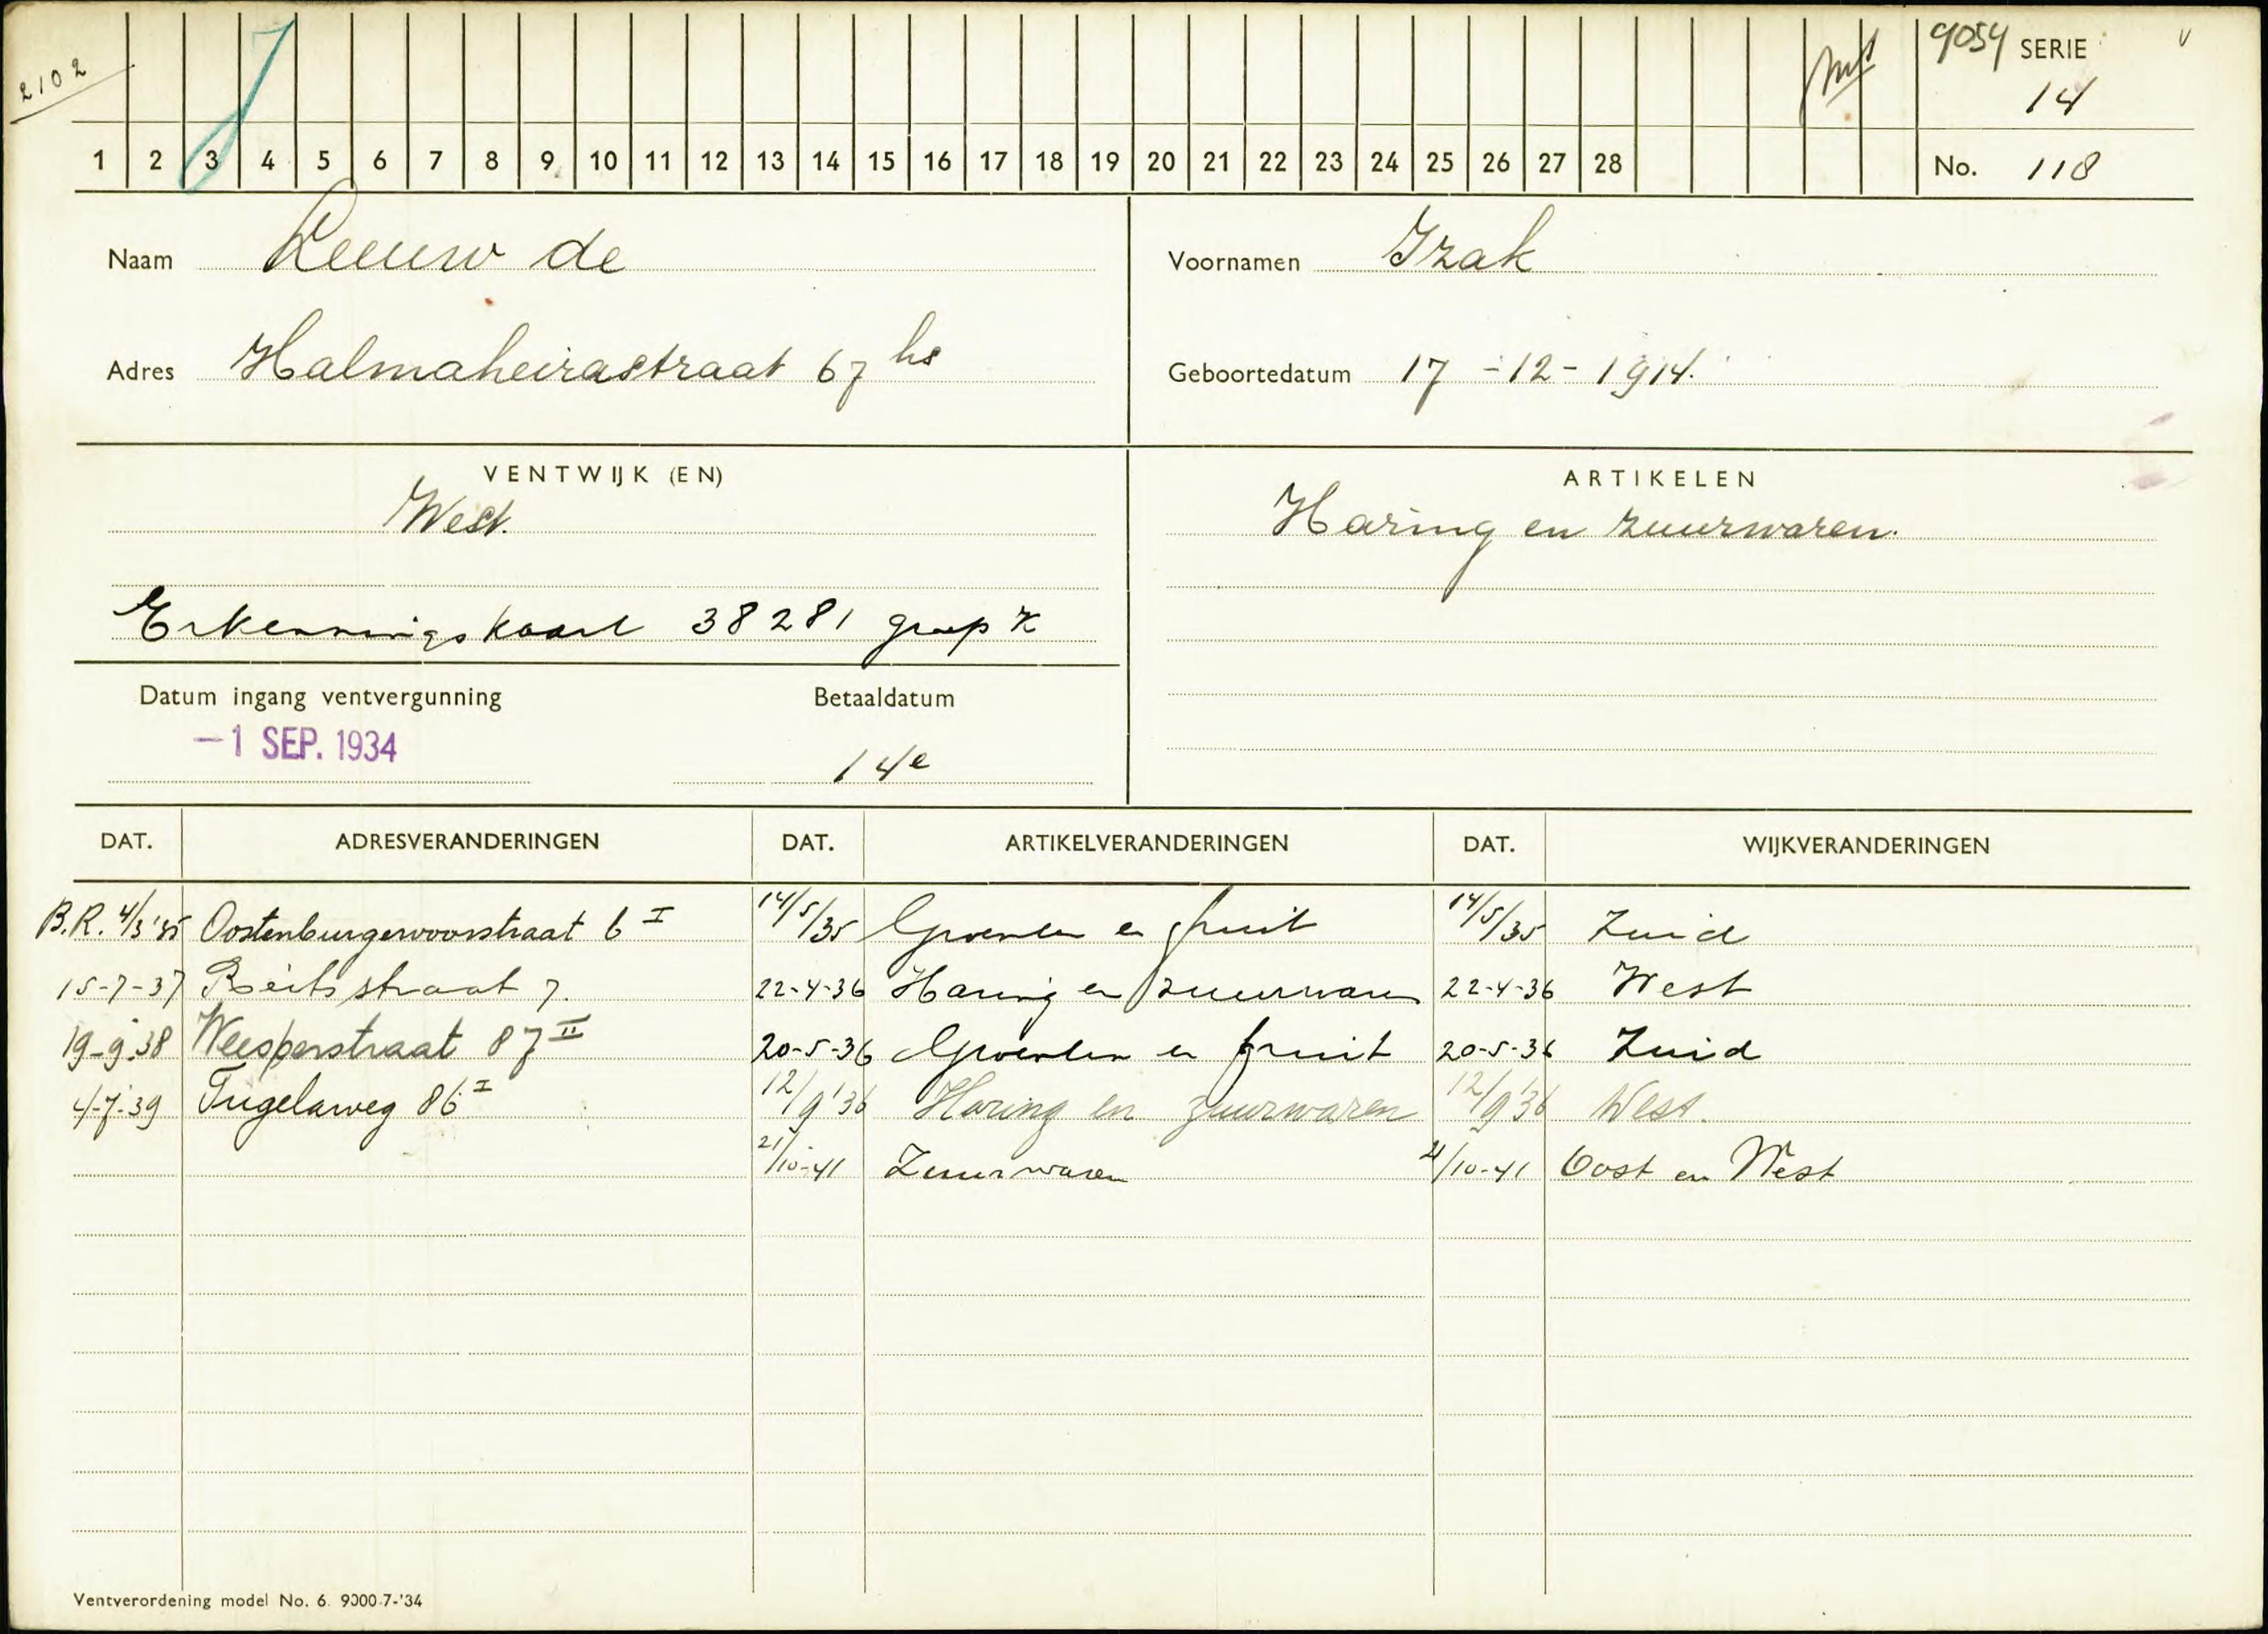 2102
9054 SERIE
14
1 2 3 4 5 6 7 8 9 10 11 12 13 14 15 16 17 18 19 20 21 22 23 24 25 26 27 28
No. 118
Naam Leeuw de
Voornamen Izak
Adres Halmaheirastraat 67 hs
Geboortedatum 17-12-1914.
VENTWIJK (EN)
ARTIKELEN
West.
Haring en zuurwaren.
Erkenningskaart 38281 groep K
Datum ingang ventvergunning Betaaldatum
-1 SEP. 1934
14e
DAT. ADRESVERANDERINGEN DAT. ARTIKELVERANDERINGEN DAT. WIJKVERANDERINGEN
B.R. 4/3'35 Oostenburgervoorstraat 6 I 14/5/35 Groenten en fruit 14/5/35 Zuid
15-7-37 Reitsstraat 7. 22-4-36 Haring en zuurwaren 22-4-36 West
19-9-38 Weesperstraat 87 II 20-5-36 Groenten en fruit 20-5-36 Zuid
4-7-39 Tugelaweg 86 I 12/9'36 Haring en zuurwaren 12/9'36 West.
21/10-41 Zuurwaren 21/10-41 Oost en West
Ventverordening model No. 6. 9000-7-'34